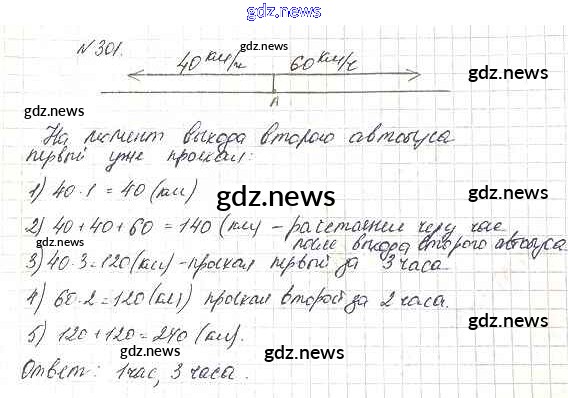 gdz.news
№301.
gdz.news
40 км/ч 60 км/ч
gdz.news
A
gdz.news
На момент выхода второго автобуса
первый уже проехал:
gdz.news
1) 40·1=40 (км)
gdz.news
2) 40+40+60=140 (км) - расстояние через час
gdz.news
после выхода второго автобуса
3) 40·3=120 (км) - проехал первый за 3 часа
gdz.news
4) 60·2=120 (км) проехал второй за 2 часа.
gdz.news
5) 120+120=240 (км).
gdz.news
gdz.news
Ответ: 1 час, 3 часа.
gdz.news